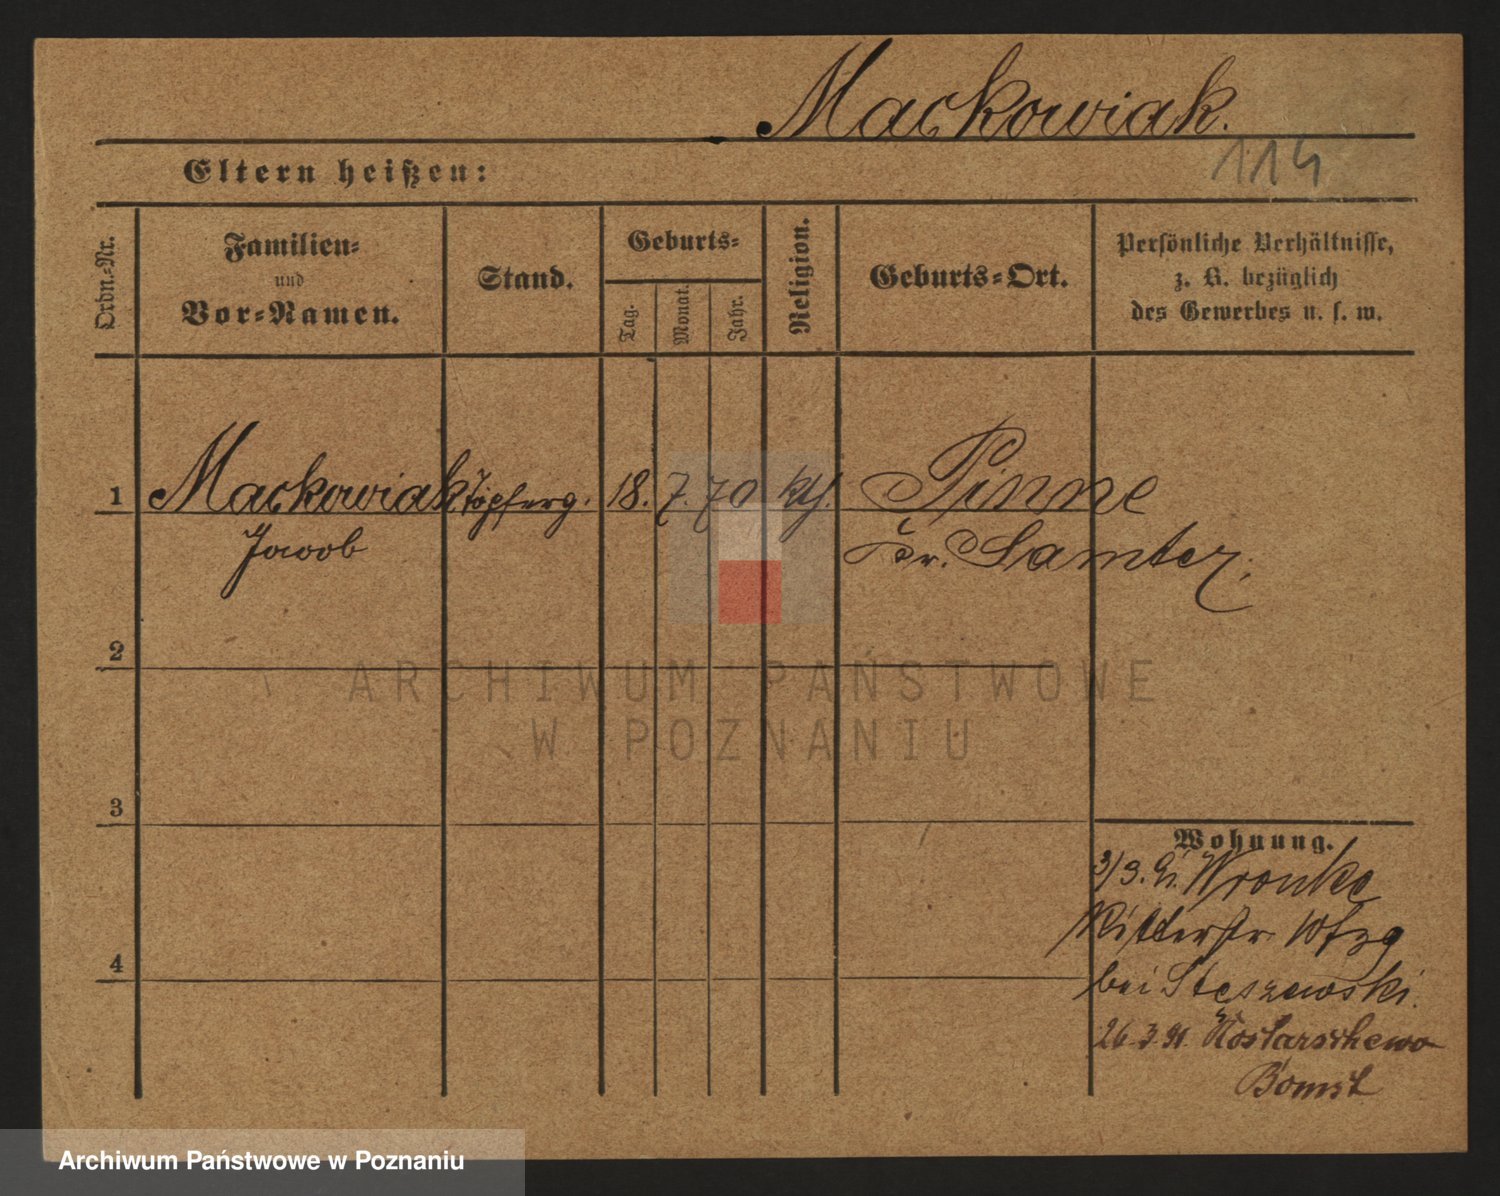 Mackowiak.
114
Eltern heißen:
Ordn.-Nr.
Familien-
und
Vor-Namen.
Stand.
Geburts-
Tag.
Monat.
Jahr.
Religion.
Geburts-Ort.
Persönliche Verhältnisse,
z. B. bezüglich
des Gewerbes u. s. w.
1 Mackowiak Töpferg. 18. 7. 70 kth. Pinne
Jacob Kr. Samter.
2
3
4
Wohnung.
3/3. Wronke
Ritterstr 10
bei Stęszewski.
26.3.91. Kostarschewo
Bomst
ARCHIWUM PAŃSTWOWE
W POZNANIU
Archiwum Państwowe w Poznaniu